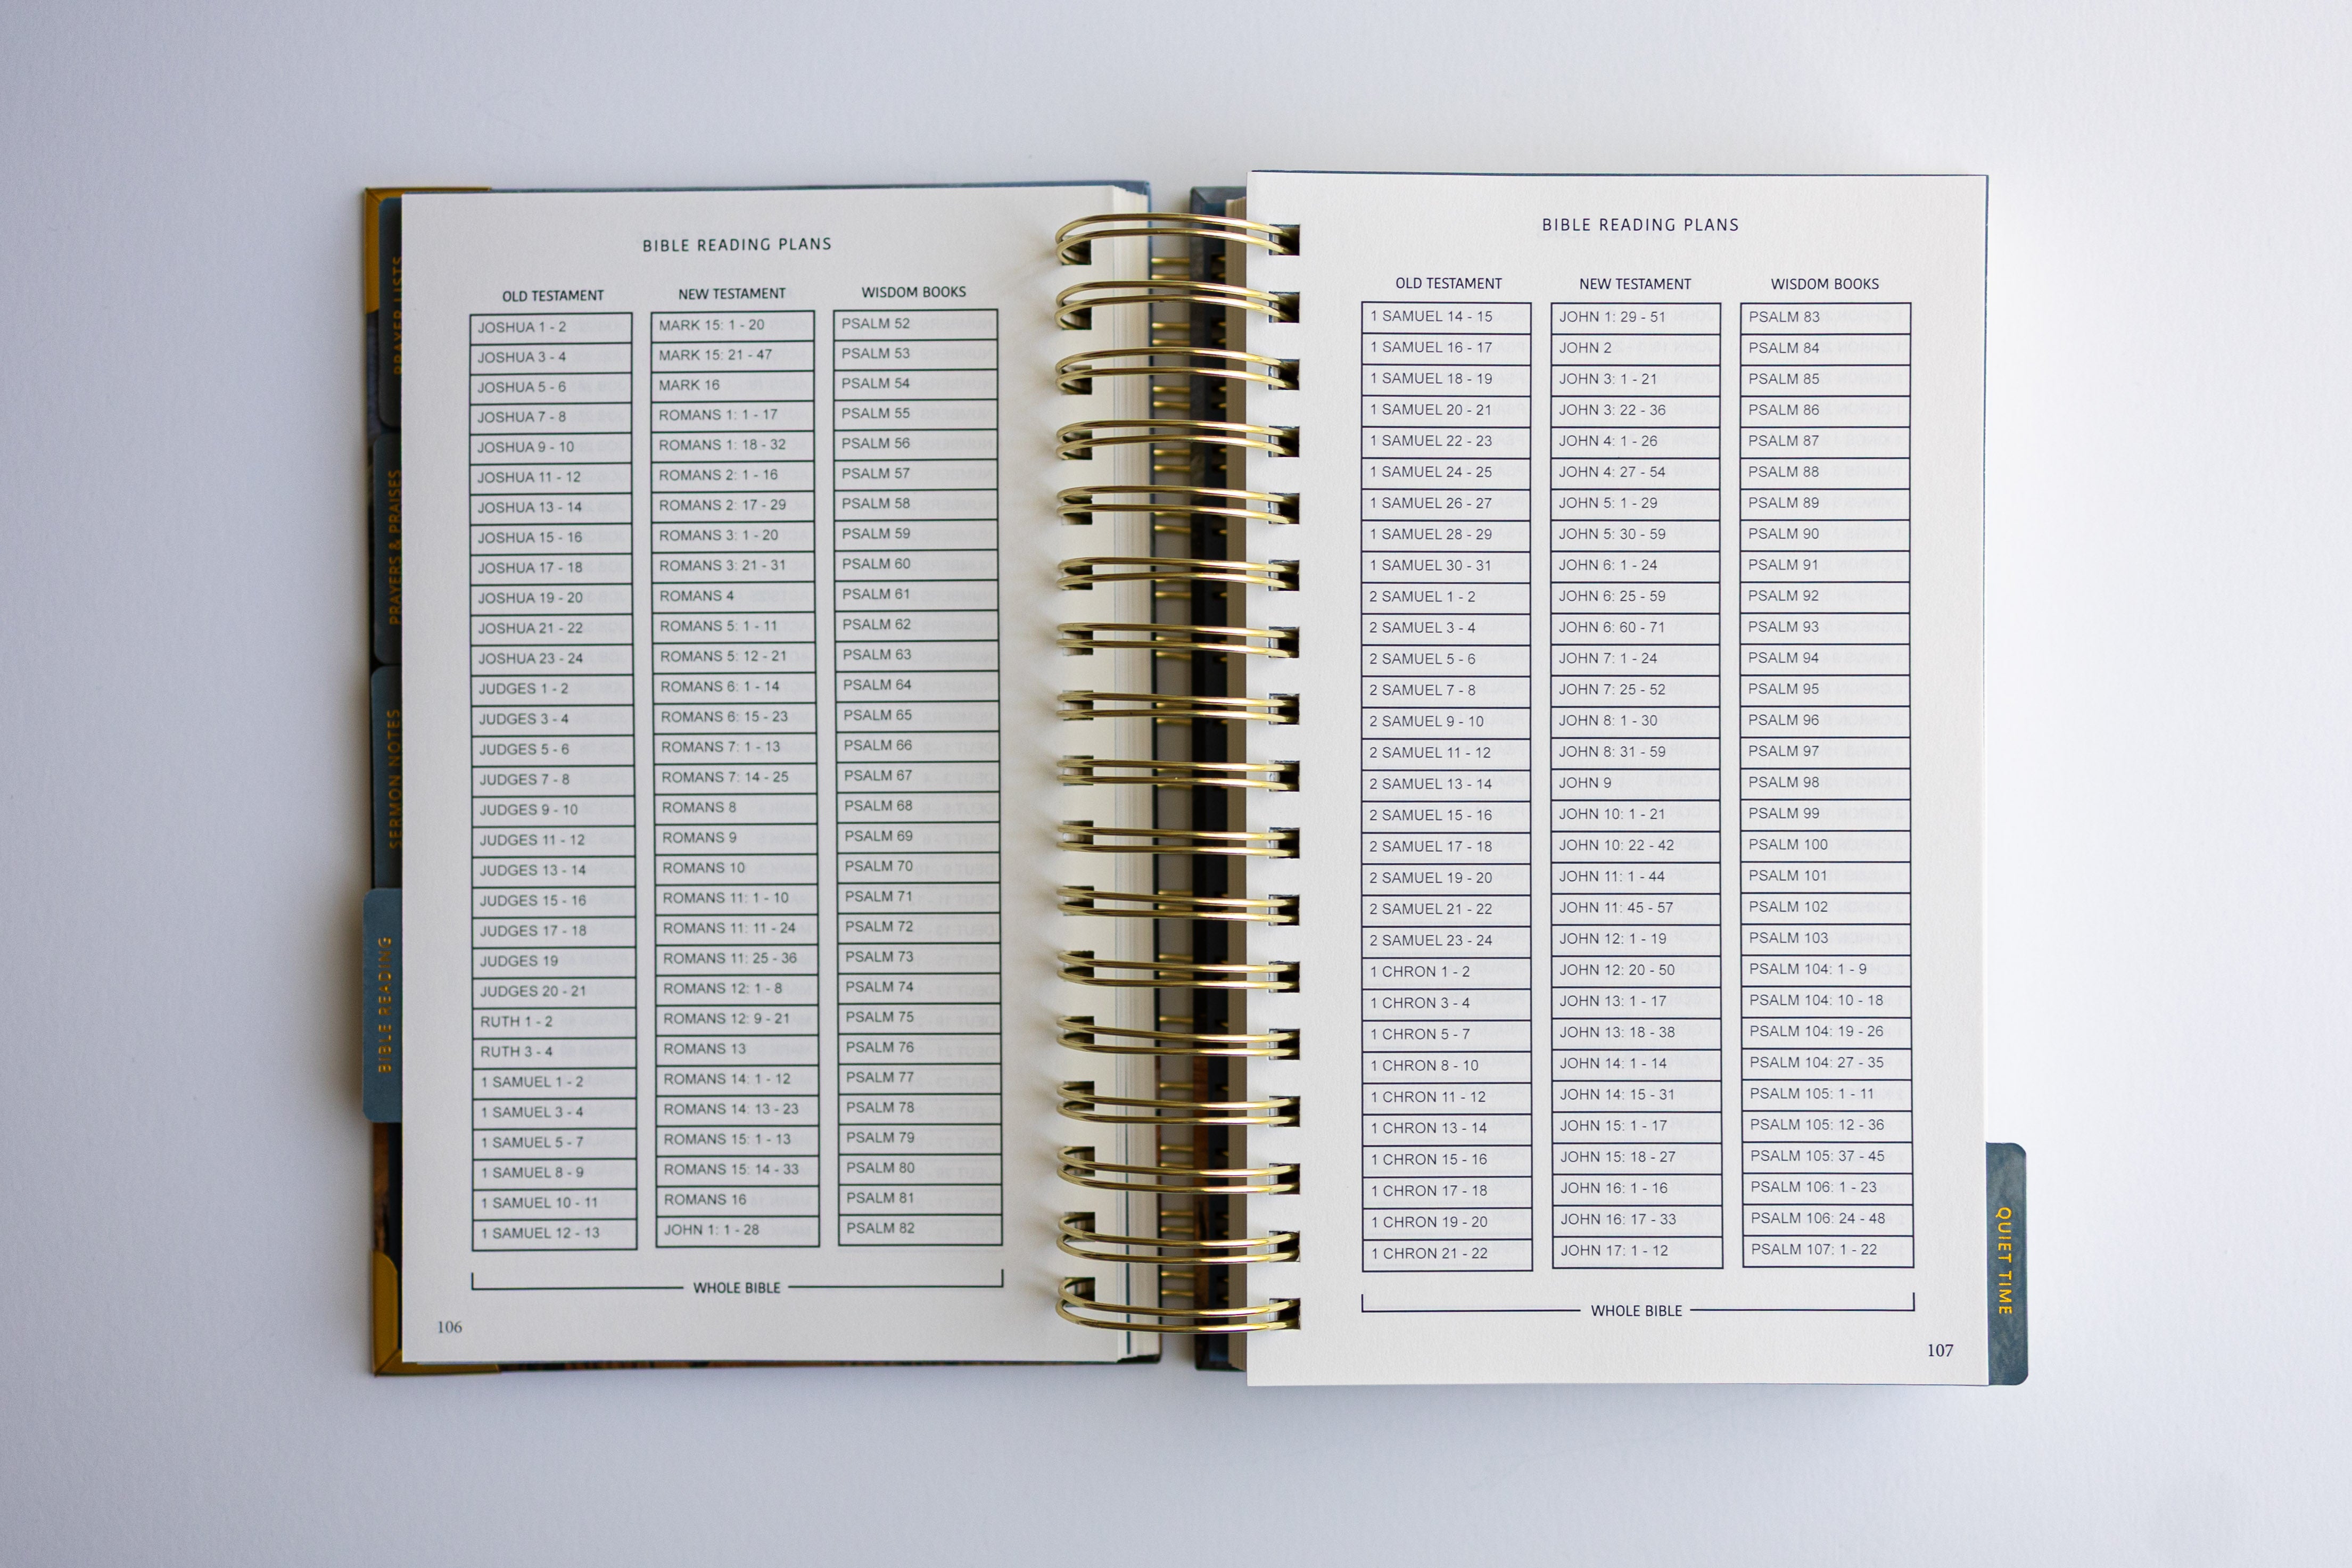 PRAYER LISTS
PRAYERS & PRAISES
SERMON NOTES
BIBLE READING
BIBLE READING PLANS
OLD TESTAMENT NEW TESTAMENT WISDOM BOOKS
JOSHUA 1 - 2 MARK 15: 1 - 20 PSALM 52
JOSHUA 3 - 4 MARK 15: 21 - 47 PSALM 53
JOSHUA 5 - 6 MARK 16 PSALM 54
JOSHUA 7 - 8 ROMANS 1: 1 - 17 PSALM 55
JOSHUA 9 - 10 ROMANS 1: 18 - 32 PSALM 56
JOSHUA 11 - 12 ROMANS 2: 1 - 16 PSALM 57
JOSHUA 13 - 14 ROMANS 2: 17 - 29 PSALM 58
JOSHUA 15 - 16 ROMANS 3: 1 - 20 PSALM 59
JOSHUA 17 - 18 ROMANS 3: 21 - 31 PSALM 60
JOSHUA 19 - 20 ROMANS 4 PSALM 61
JOSHUA 21 - 22 ROMANS 5: 1 - 11 PSALM 62
JOSHUA 23 - 24 ROMANS 5: 12 - 21 PSALM 63
JUDGES 1 - 2 ROMANS 6: 1 - 14 PSALM 64
JUDGES 3 - 4 ROMANS 6: 15 - 23 PSALM 65
JUDGES 5 - 6 ROMANS 7: 1 - 13 PSALM 66
JUDGES 7 - 8 ROMANS 7: 14 - 25 PSALM 67
JUDGES 9 - 10 ROMANS 8 PSALM 68
JUDGES 11 - 12 ROMANS 9 PSALM 69
JUDGES 13 - 14 ROMANS 10 PSALM 70
JUDGES 15 - 16 ROMANS 11: 1 - 10 PSALM 71
JUDGES 17 - 18 ROMANS 11: 11 - 24 PSALM 72
JUDGES 19 ROMANS 11: 25 - 36 PSALM 73
JUDGES 20 - 21 ROMANS 12: 1 - 8 PSALM 74
RUTH 1 - 2 ROMANS 12: 9 - 21 PSALM 75
RUTH 3 - 4 ROMANS 13 PSALM 76
1 SAMUEL 1 - 2 ROMANS 14: 1 - 12 PSALM 77
1 SAMUEL 3 - 4 ROMANS 14: 13 - 23 PSALM 78
1 SAMUEL 5 - 7 ROMANS 15: 1 - 13 PSALM 79
1 SAMUEL 8 - 9 ROMANS 15: 14 - 33 PSALM 80
1 SAMUEL 10 - 11 ROMANS 16 PSALM 81
1 SAMUEL 12 - 13 JOHN 1: 1 - 28 PSALM 82
WHOLE BIBLE
106
BIBLE READING PLANS
OLD TESTAMENT NEW TESTAMENT WISDOM BOOKS
1 SAMUEL 14 - 15 JOHN 1: 29 - 51 PSALM 83
1 SAMUEL 16 - 17 JOHN 2 PSALM 84
1 SAMUEL 18 - 19 JOHN 3: 1 - 21 PSALM 85
1 SAMUEL 20 - 21 JOHN 3: 22 - 36 PSALM 86
1 SAMUEL 22 - 23 JOHN 4: 1 - 26 PSALM 87
1 SAMUEL 24 - 25 JOHN 4: 27 - 54 PSALM 88
1 SAMUEL 26 - 27 JOHN 5: 1 - 29 PSALM 89
1 SAMUEL 28 - 29 JOHN 5: 30 - 59 PSALM 90
1 SAMUEL 30 - 31 JOHN 6: 1 - 24 PSALM 91
2 SAMUEL 1 - 2 JOHN 6: 25 - 59 PSALM 92
2 SAMUEL 3 - 4 JOHN 6: 60 - 71 PSALM 93
2 SAMUEL 5 - 6 JOHN 7: 1 - 24 PSALM 94
2 SAMUEL 7 - 8 JOHN 7: 25 - 52 PSALM 95
2 SAMUEL 9 - 10 JOHN 8: 1 - 30 PSALM 96
2 SAMUEL 11 - 12 JOHN 8: 31 - 59 PSALM 97
2 SAMUEL 13 - 14 JOHN 9 PSALM 98
2 SAMUEL 15 - 16 JOHN 10: 1 - 21 PSALM 99
2 SAMUEL 17 - 18 JOHN 10: 22 - 42 PSALM 100
2 SAMUEL 19 - 20 JOHN 11: 1 - 44 PSALM 101
2 SAMUEL 21 - 22 JOHN 11: 45 - 57 PSALM 102
2 SAMUEL 23 - 24 JOHN 12: 1 - 19 PSALM 103
1 CHRON 1 - 2 JOHN 12: 20 - 50 PSALM 104: 1 - 9
1 CHRON 3 - 4 JOHN 13: 1 - 17 PSALM 104: 10 - 18
1 CHRON 5 - 7 JOHN 13: 18 - 38 PSALM 104: 19 - 26
1 CHRON 8 - 10 JOHN 14: 1 - 14 PSALM 104: 27 - 35
1 CHRON 11 - 12 JOHN 14: 15 - 31 PSALM 105: 1 - 11
1 CHRON 13 - 14 JOHN 15: 1 - 17 PSALM 105: 12 - 36
1 CHRON 15 - 16 JOHN 15: 18 - 27 PSALM 105: 37 - 45
1 CHRON 17 - 18 JOHN 16: 1 - 16 PSALM 106: 1 - 23
1 CHRON 19 - 20 JOHN 16: 17 - 33 PSALM 106: 24 - 48
1 CHRON 21 - 22 JOHN 17: 1 - 12 PSALM 107: 1 - 22
WHOLE BIBLE
107
QUIET TIME